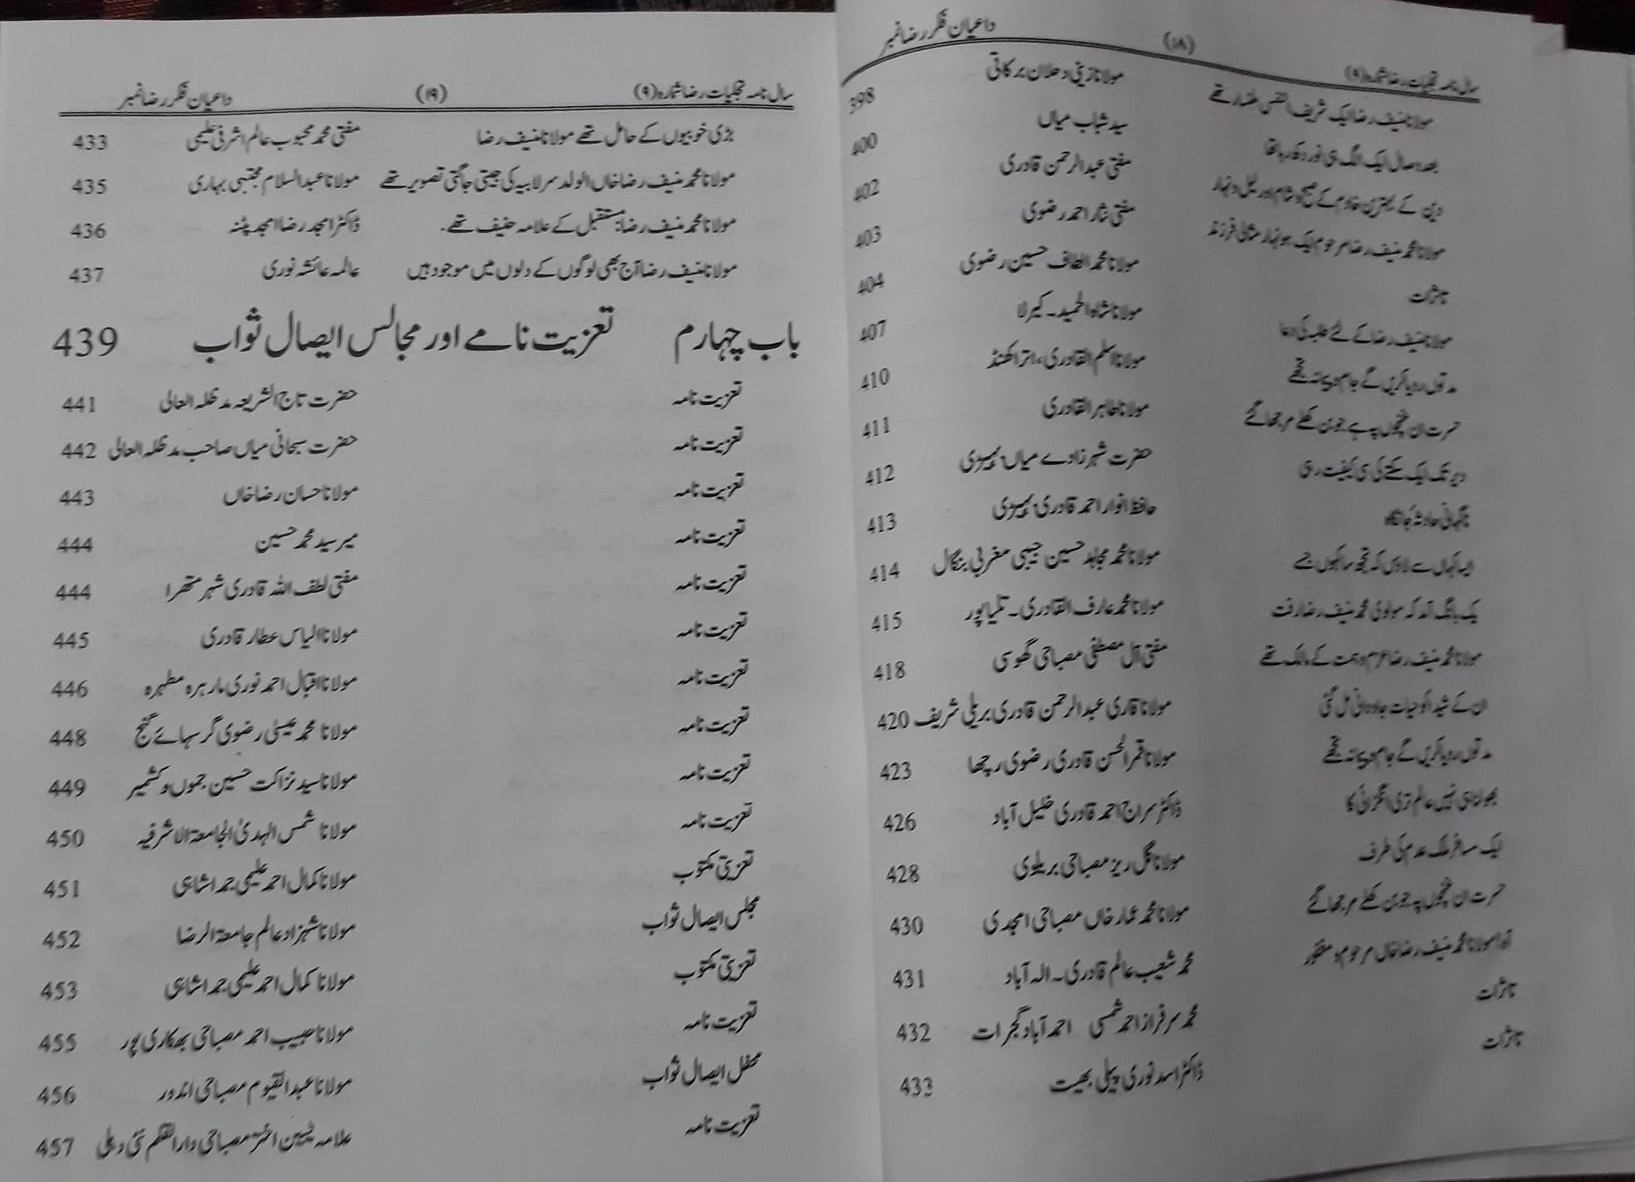 سال نامہ تجلیات رضا شمارہ (۹) (۱۸) داعیان فکر رضا نمبر
مولانا منیف رضا ایک شریف النفس ملنسار تھے مولانا زینی دحلان برکاتی 398
بعد وصال ایک الگ ہی نور دکھ رہا تھا سید شہاب میاں 400
دین کے بہترین خادم کے صبح و شام اور لیل و نہار مفتی عبدالرحمن قادری 402
مولانا محمد منیف رضا مرحوم ایک ہونہار مثالی فرزند مفتی نثار احمد رضوی 403
تاثرات مولانا محمد الطاف حسین رضوی 404
مولانا منیف رضا کے لئے طلبہ کی دعا مولانا شاہ الحمید۔ کیرلا 407
مدتوں رویا کریں گے جام و پیمانہ تجھے مولانا اسلم القادری، اتراکھنڈ 410
حسرت ان غنچوں پہ ہے جو بن کھلے مرجھا گئے مولانا طاہر القادری 411
دیر تک ایک سکتے کی سی کیفیت رہی حضرت شہزادے میاں، بہیڑی 412
ناگہانی حادثہ جانکاہ حافظ انوار احمد قادری، بہیڑی 413
ایسا کہاں سے لاؤں کہ تجھ سا کہوں جسے مولانا محمد مجاہد حسین حبیبی مغربی بنگال 414
یک بانگ آمد کہ مولوی محمد منیف رضا رفت مولانا محمد عارف القادری۔ تلیاپور 415
مولانا محمد منیف رضا عزم و ہمت کے مالک تھے مفتی آل مصطفی مصباحی گھوسی 418
ان کے شیدا کو حیات جاودانی مل گئی مولانا قاری عبدالرحمن قادری بریلی شریف 420
مدتوں رویا کریں گے جام و پیمانہ تجھے مولانا قمر الحسن قادری رضوی رچھا 423
بھولتا ہی نہیں عالم تری انگڑائی کا ڈاکٹر سراج احمد قادری خلیل آباد 426
ایک مسافر ملک عدم کی طرف مولانا گل ریز مصباحی بریلوی 428
حسرت ان غنچوں پہ جو بن کھلے مرجھا گئے مولانا محمد عمار خاں مصباحی امجدی 430
آہ! مولانا محمد منیف رضا خاں مرحوم و مغفور محمد شعیب عالم قادری۔ الہ آباد 431
تاثرات محمد سرفراز احمد شمسی احمد آباد گجرات 432
تاثرات ڈاکٹر اسد نوری پیلی بھیت 433
سال نامہ تجلیات رضا شمارہ (۹) (۱۹) داعیان فکر رضا نمبر
بڑی خوبیوں کے حامل تھے مولانا منیف رضا مفتی محمد محبوب عالم اشرفی علیمی 433
مولانا محمد منیف رضا خاں الولد سر لابیہ کی جیتی جاگتی تصویر تھے مولانا عبدالسلام مجتبی بہاری 435
مولانا محمد منیف رضا: مستقبل کے علامہ حنیف تھے۔ ڈاکٹر امجد رضا امجد پٹنہ 436
مولانا منیف رضا آج بھی لوگوں کے دلوں میں موجود ہیں عالمہ عائشہ نوری 437
باب چہارم تعزیت نامے اور مجالس ایصال ثواب 439
تعزیت نامہ حضرت تاج الشریعہ مدظلہ العالی 441
تعزیت نامہ حضرت سبحانی میاں صاحب مدظلہ العالی 442
تعزیت نامہ مولانا حسان رضا خاں 443
تعزیت نامہ میر سید محمد حسین 444
تعزیت نامہ مفتی لطف اللہ قادری شہر متھرا 444
تعزیت نامہ مولانا الیاس عطار قادری 445
تعزیت نامہ مولانا اقبال احمد نوری مارہرہ مطہرہ 446
تعزیت نامہ مولانا محمد عیسیٰ رضوی گرسہائے گنج 448
تعزیت نامہ مولانا سید نزاکت حسین جموں و کشمیر 449
تعزیت نامہ مولانا شمس الہدیٰ الجامعۃ الاشرفیہ 450
تعزیتی مکتوب مولانا کمال احمد علیمی جمداشاہی 451
مجلس ایصال ثواب مولانا شہزاد عالم جامعۃ الرضا 452
تعزیتی مکتوب مولانا کمال احمد علیمی جمداشاہی 453
تعزیت نامہ مولانا حبیب احمد مصباحی بھکاری پور 455
محفل ایصال ثواب مولانا عبدالقیوم مصباحی اندور 456
تعزیت نامہ علامہ یٰسین اختر مصباحی دارالقلم نئی دہلی 457